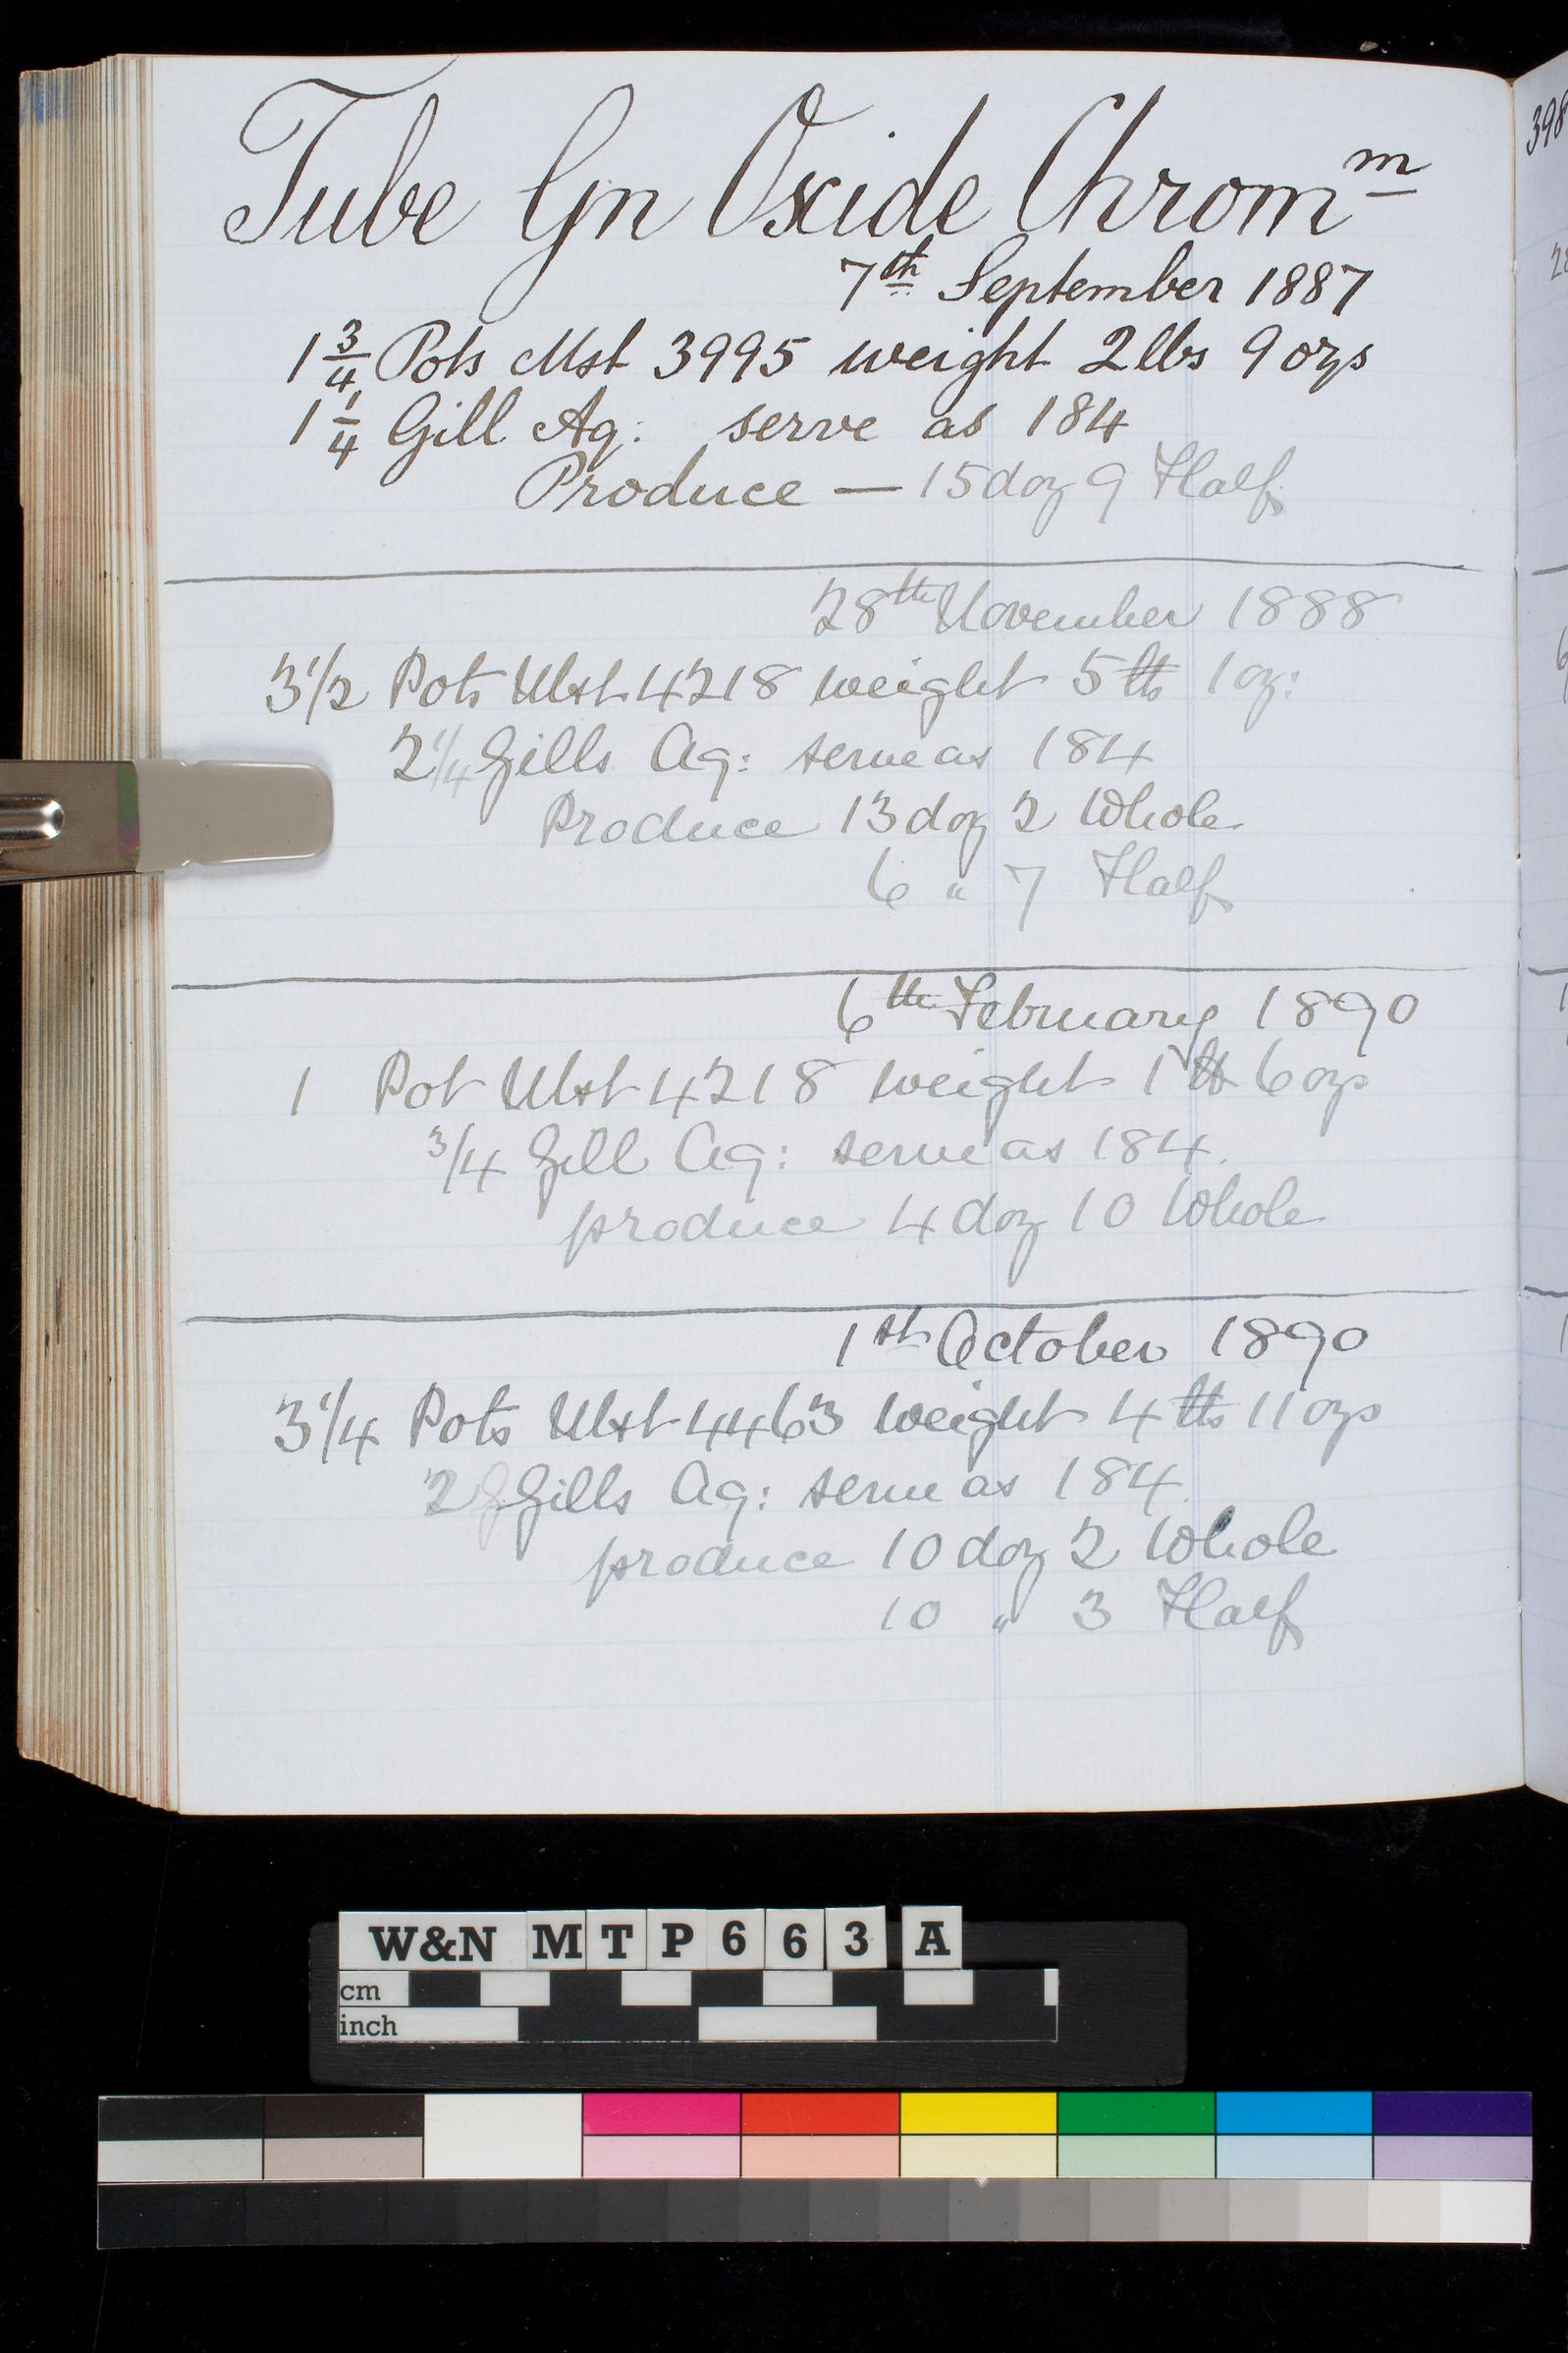 Tube Gn Oxide Chrom^m
7th September 1887
1 3/4 Pots Mst 3995 weight 2 lbs 9 ozs
1 1/4 Gill Aq: serve as 184
Produce — 15 doz 9 Half
28th November 1888
3 1/2 Pots Mst 4218 weight 5 lbs 1 oz:
2 1/4 Gills Aq: serve as 184
Produce 13 doz 2 Whole
6 " 7 Half
6th February 1890
1 Pot Mst 4218 weight 1 lb 6 ozs
3/4 Gill Aq: serve as 184.
produce 4 doz 10 Whole
1st October 1890
3 1/4 Pots Mst 4463 weight 4 lbs 11 ozs
2 Gills Aq: serve as 184.
produce 10 doz 2 Whole
10 " 3 Half
398
W&N MTP663A
cm
inch